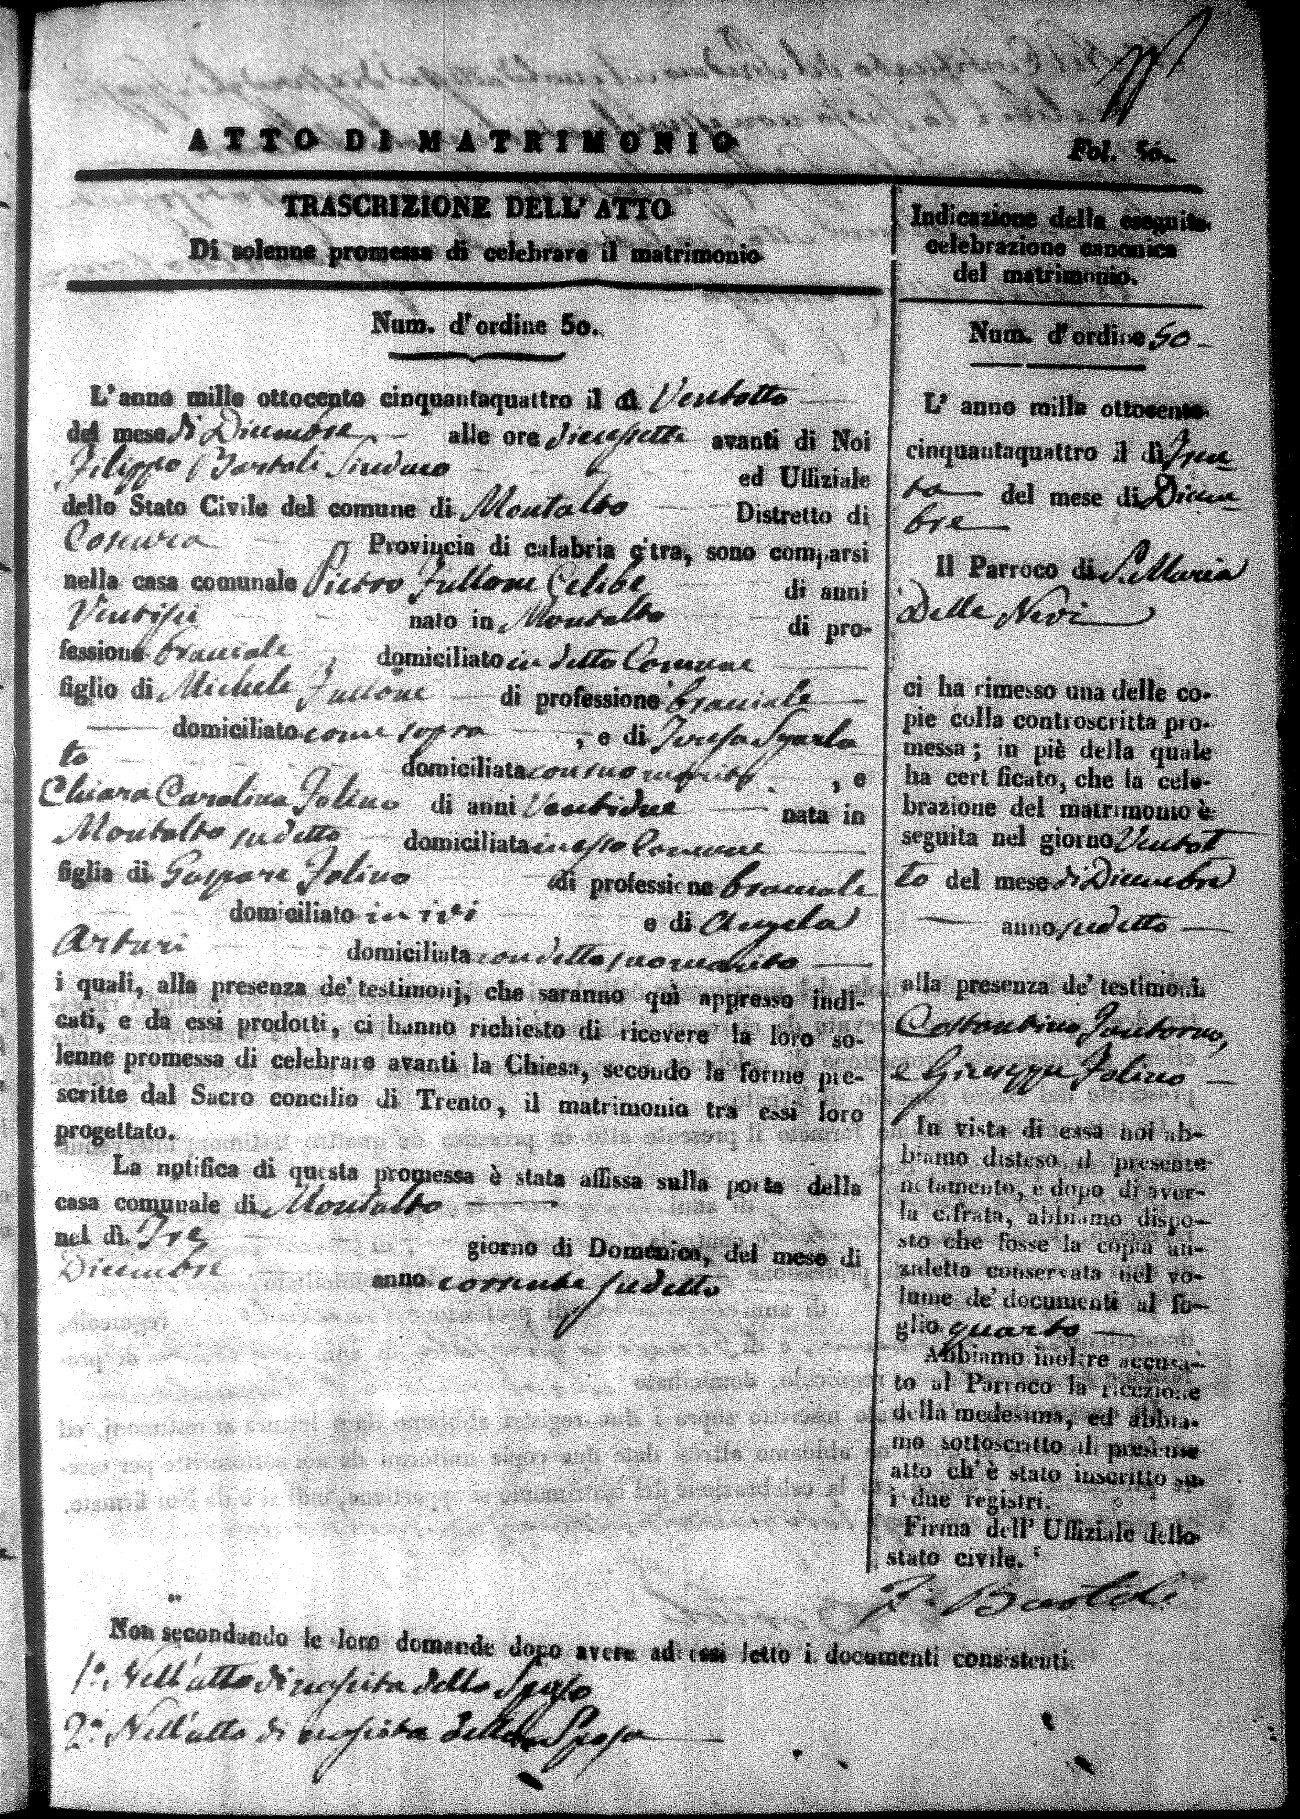 ATTO DI MATRIMONIO
Fol. 50.
TRASCRIZIONE DELL' ATTO
Di solenne promessa di celebrare il matrimonio
Num. d'ordine 50.
L'anno mille ottocento cinquantaquattro il dì Ventotto
del mese di Dicembre alle ore diecisette avanti di Noi
Filippo Bartoli Sindaco ed Uffiziale
dello Stato Civile del comune di Montalto Distretto di
Cosenza Provincia di calabria citra, sono comparsi
nella casa comunale Pietro Fullone Celibe di anni
Ventisei nato in Montalto di pro-
fessione bracciale domiciliato in detto Comune
figlio di Michele Fullone di professione bracciale
domiciliato come sopra, e di Teresa Scarla
to domiciliata con suo marito, e
Chiara Carolina Folino di anni Ventidue nata in
Montalto sudetto domiciliata in esso Comune
figlia di Gaspare Folino di professione bracciale
domiciliato in ivi e di Angela
Arturi domiciliata con detto suo marito
i quali, alla presenza de' testimonj, che saranno quì appresso indi-
cati, e da essi prodotti, ci hanno richiesto di ricevere la loro so-
lenne promessa di celebrare avanti la Chiesa, secondo le forme pre-
scritte dal Sacro concilio di Trento, il matrimonio tra essi loro
progettato.
La notifica di questa promessa è stata affissa sulla porta della
casa comunale di Montalto
nel dì Tre giorno di Domenica, del mese di
Dicembre anno corrente sudetto
Indicazione della eseguita
celebrazione canonica
del matrimonio.
Num. d'ordine 50
L' anno mille ottocento
cinquantaquattro il dì Tren-
ta del mese di Dicem-
bre
Il Parroco di S. Maria
Delle Nevi
ci ha rimesso una delle co-
pie colla controscritta pro-
messa; in piè della quale
ha certificato, che la cele-
brazione del matrimonio è
seguita nel giorno Ventot
to del mese di Dicembre
anno sudetto
alla presenza de' testimoni
Costantino
e Giuseppe Folino
In vista di essa noi ab-
biamo disteso il presente
notamento, e dopo di aver-
la cifrata, abbiamo dispo-
sto che fosse la copia an-
zidetta conservata nel vo-
lume de' documenti al fo-
glio quarto
Abbiamo inoltre accusa-
to al Parroco la ricezione
della medesima, ed abbia-
mo sottoscritto il presente
atto ch' è stato inscritto su
i due registri.
Firma dell' Uffiziale dello
stato civile.
F. Bartoli
Non secondando le loro domande dopo avere ad essi letto i documenti consistenti
1.° Nell'atto di nascita dello Sposo
2.° Nell'atto di nascita della Sposa